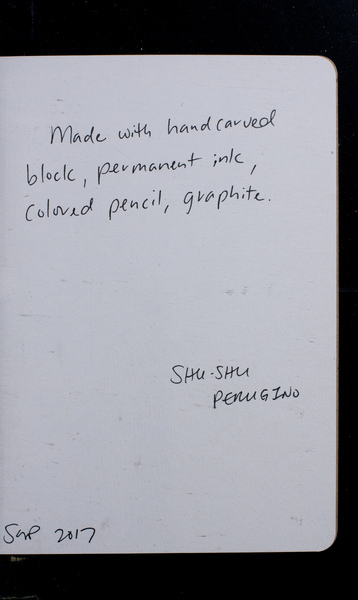 Made with handcarved
block, permanent ink,
colored pencil, graphite.
SHU-SHU
PERUGINO
2017